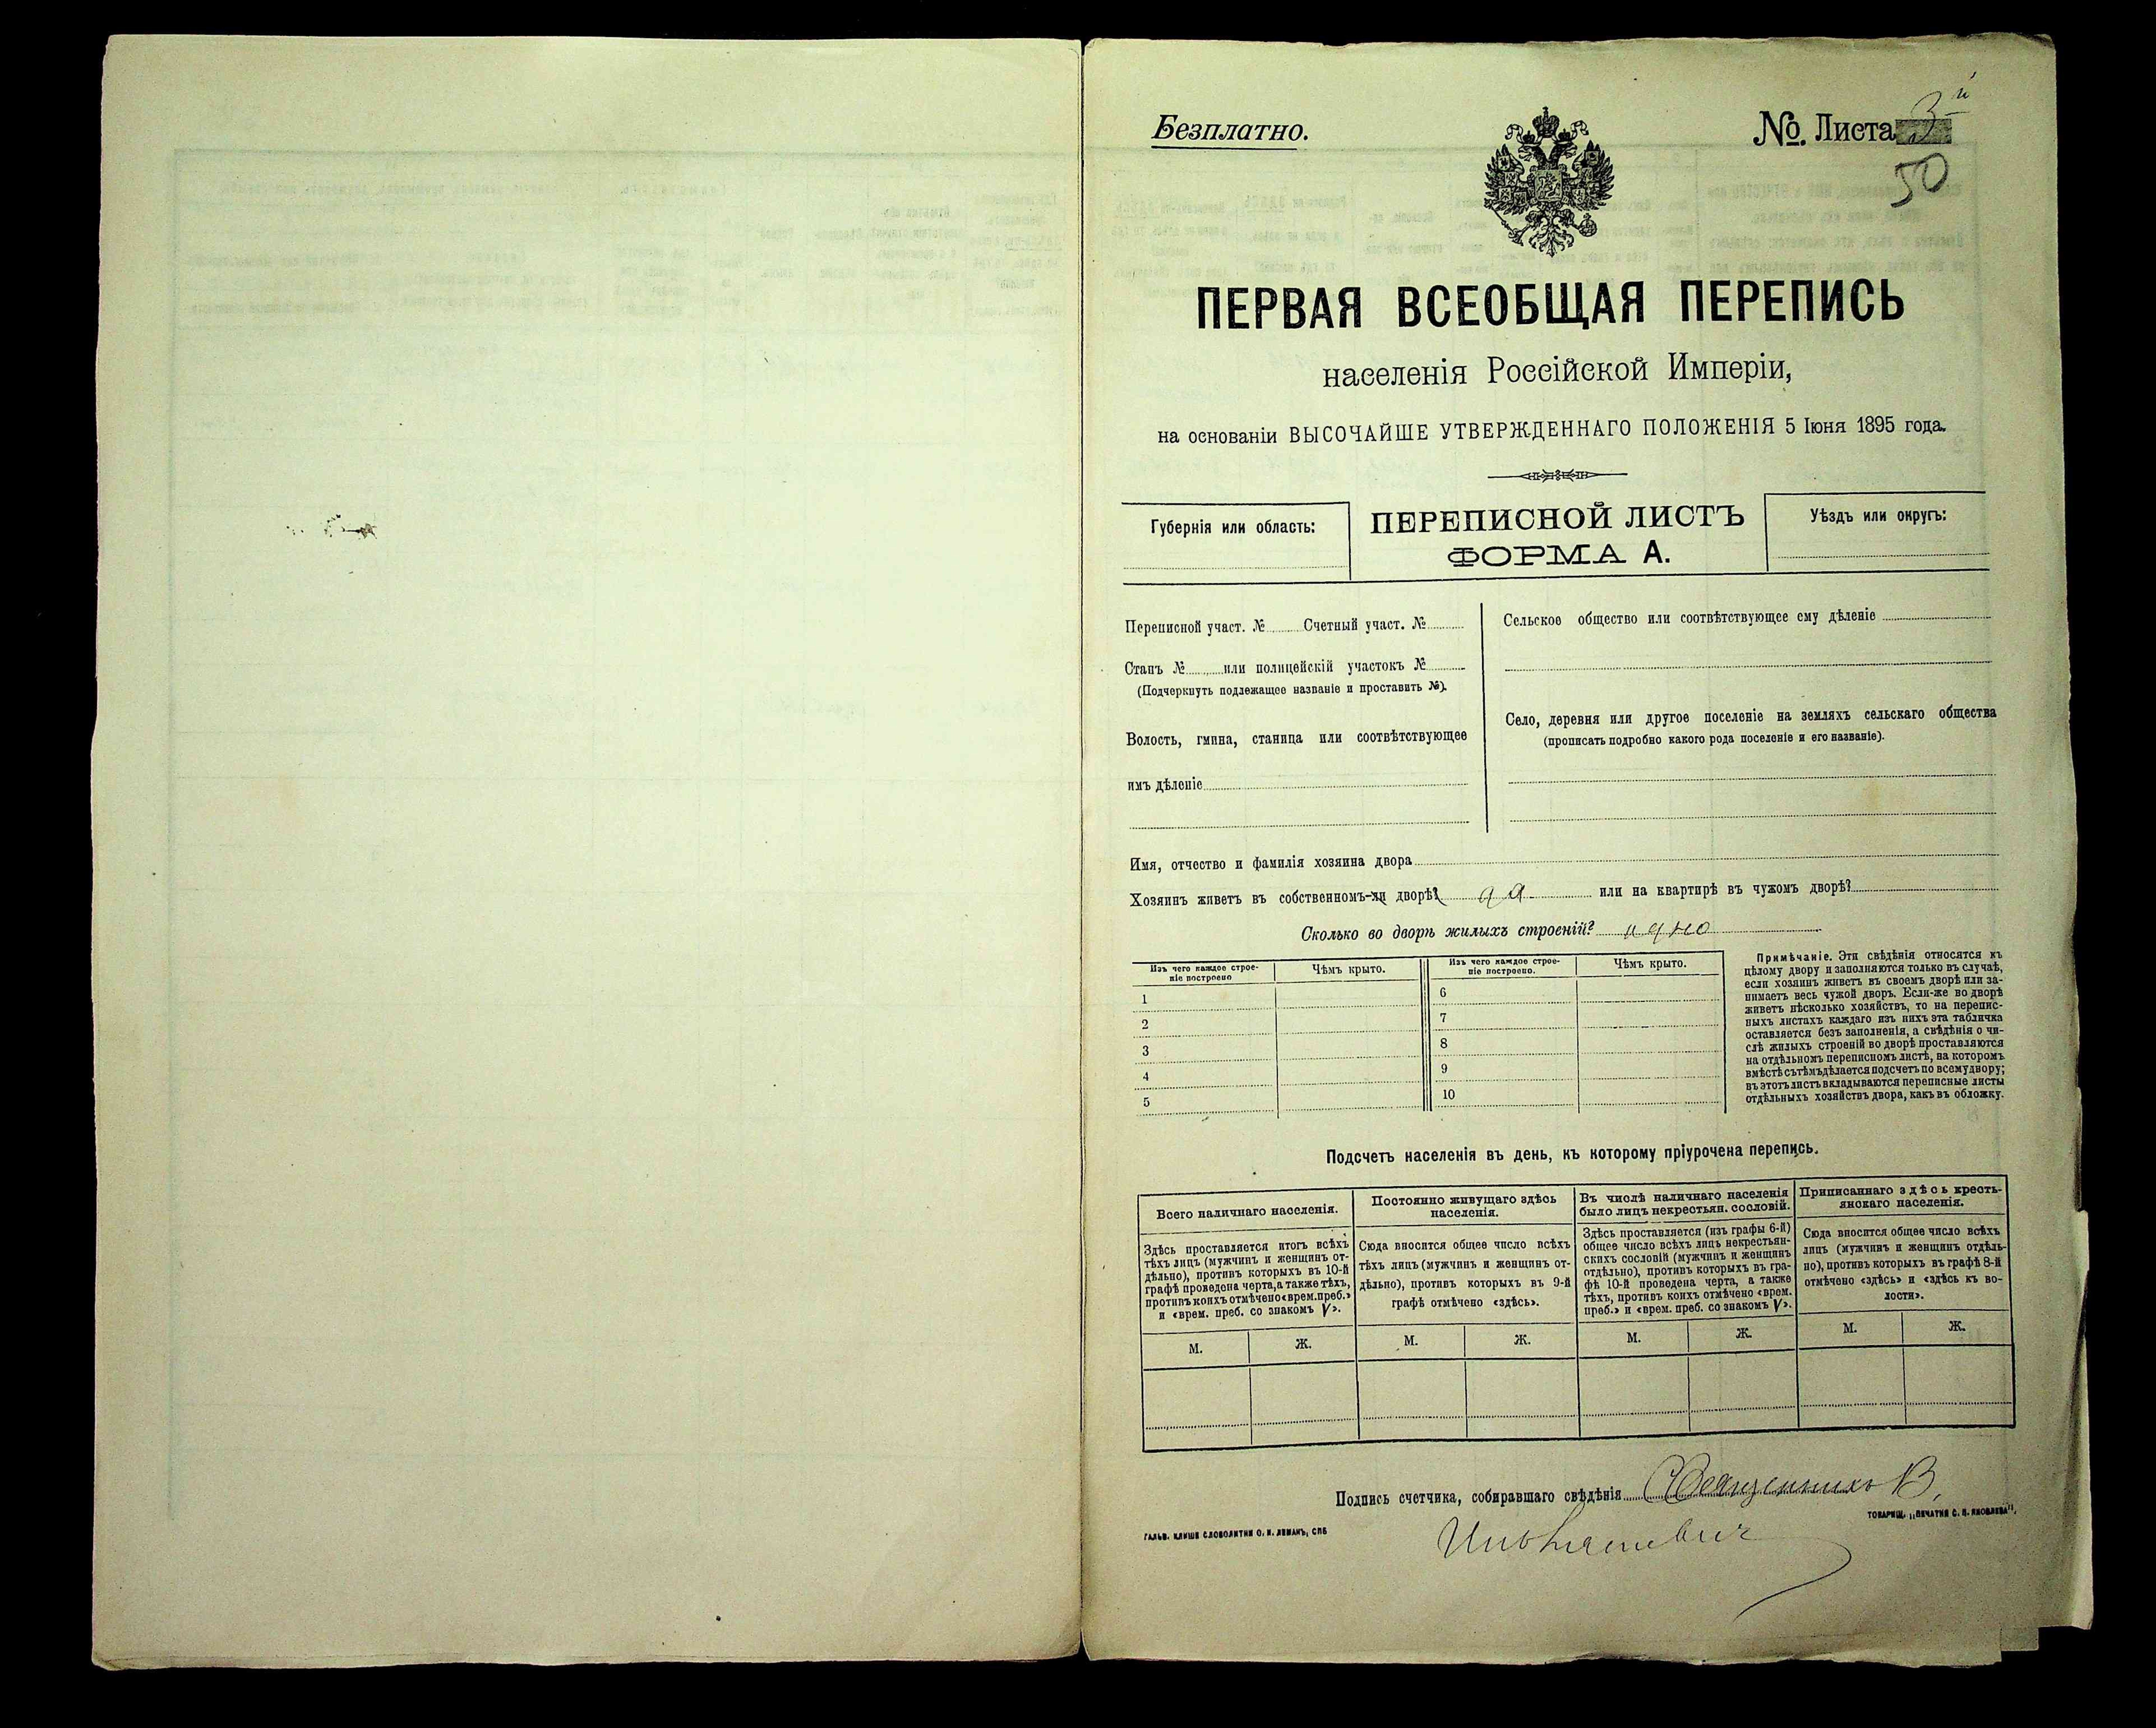 Безплатно.
№. Листа 3й
50
ПЕРВАЯ ВСЕОБЩАЯ ПЕРЕПИСЬ
населенія Россійской Имперіи,
на основаніи ВЫСОЧАЙШЕ УТВЕРЖДЕННАГО ПОЛОЖЕНІЯ 5 Іюня 1895 года.
Губернія или область:
ПЕРЕПИСНОЙ ЛИСТЪ
ФОРМА А.
Уѣздъ или округъ:
Переписной участ. № Счетный участ. №
Станъ № или полицейскій участокъ №
(Подчеркнуть подлежащее названіе и проставить №).
Волость, гмина, станица или соотвѣтствующее
имъ дѣленіе
Сельское общество или соотвѣтствующее ему дѣленіе
Село, деревня или другое поселеніе на земляхъ сельскаго общества
(прописать подробно какого рода поселеніе и его названіе).
Имя, отчество и фамилія хозяина двора
Хозяинъ живетъ въ собственномъ-ли дворѣ? да или на квартирѣ въ чужомъ дворѣ?
Сколько во дворѣ жилыхъ строеній? идно
Изъ чего каждое строе-
ніе построено
Чѣмъ крыто.
Изъ чего каждое строе-
ніе построено.
Чѣмъ крыто.
1
2
3
4
5
6
7
8
9
10
Примѣчаніе. Эти свѣдѣнія относятся къ
цѣлому двору и заполняются только въ случаѣ,
если хозяинъ живетъ въ своемъ дворѣ или за-
нимаетъ весь чужой дворъ. Если-же во дворѣ
живетъ нѣсколько хозяйствъ, то на перепис-
ныхъ листахъ каждаго изъ нихъ эта табличка
оставляется безъ заполненія, а свѣдѣнія о чи-
слѣ жилыхъ строеній во дворѣ проставляются
на отдѣльномъ переписномъ листѣ, на которомъ
вмѣстѣ съ тѣмъ дѣлается подсчетъ по всему двору;
въ этотъ листъ вкладываются переписные листы
отдѣльныхъ хозяйствъ двора, какъ въ обложку.
Подсчетъ населенія въ день, къ которому пріурочена перепись.
Всего наличнаго населенія.
Здѣсь проставляется итогъ всѣхъ
тѣхъ лицъ (мужчинъ и женщинъ от-
дѣльно), противъ которыхъ въ 10-й
графѣ проведена черта, а также тѣхъ,
противъ коихъ отмѣчено «врем. преб.»
и «врем. преб. со знакомъ V».
М. Ж.
Постоянно живущаго здѣсь
населенія.
Сюда вносится общее число всѣхъ
тѣхъ лицъ (мужчинъ и женщинъ от-
дѣльно), противъ которыхъ въ 9-й
графѣ отмѣчено «здѣсь».
М. Ж.
Въ числѣ наличнаго населенія
было лицъ некрестьян. сословій.
Здѣсь проставляется (изъ графы 6-й)
общее число всѣхъ лицъ некрестьян-
скихъ сословій (мужчинъ и женщинъ
отдѣльно), противъ которыхъ въ гра-
фѣ 10-й проведена черта, а также
тѣхъ, противъ коихъ отмѣчено «врем.
преб.» и «врем. преб. со знакомъ V».
М. Ж.
Приписаннаго здѣсь кресть-
янскаго населенія.
Сюда вносится общее число всѣхъ
лицъ (мужчинъ и женщинъ отдѣль-
но), противъ которыхъ въ графѣ 8-й
отмѣчено «здѣсь» и «здѣсь къ во-
лости».
М. Ж.
Подпись счетчика, собиравшаго свѣдѣнія Священникъ В.
ГАЛЬВ. КЛИШЕ СЛОВОЛИТНИ О. И. ЛЕМАНЪ, СПБ
ТОВАРИЩ. „ПЕЧАТНЯ С. П. ЯКОВЛЕВА“.